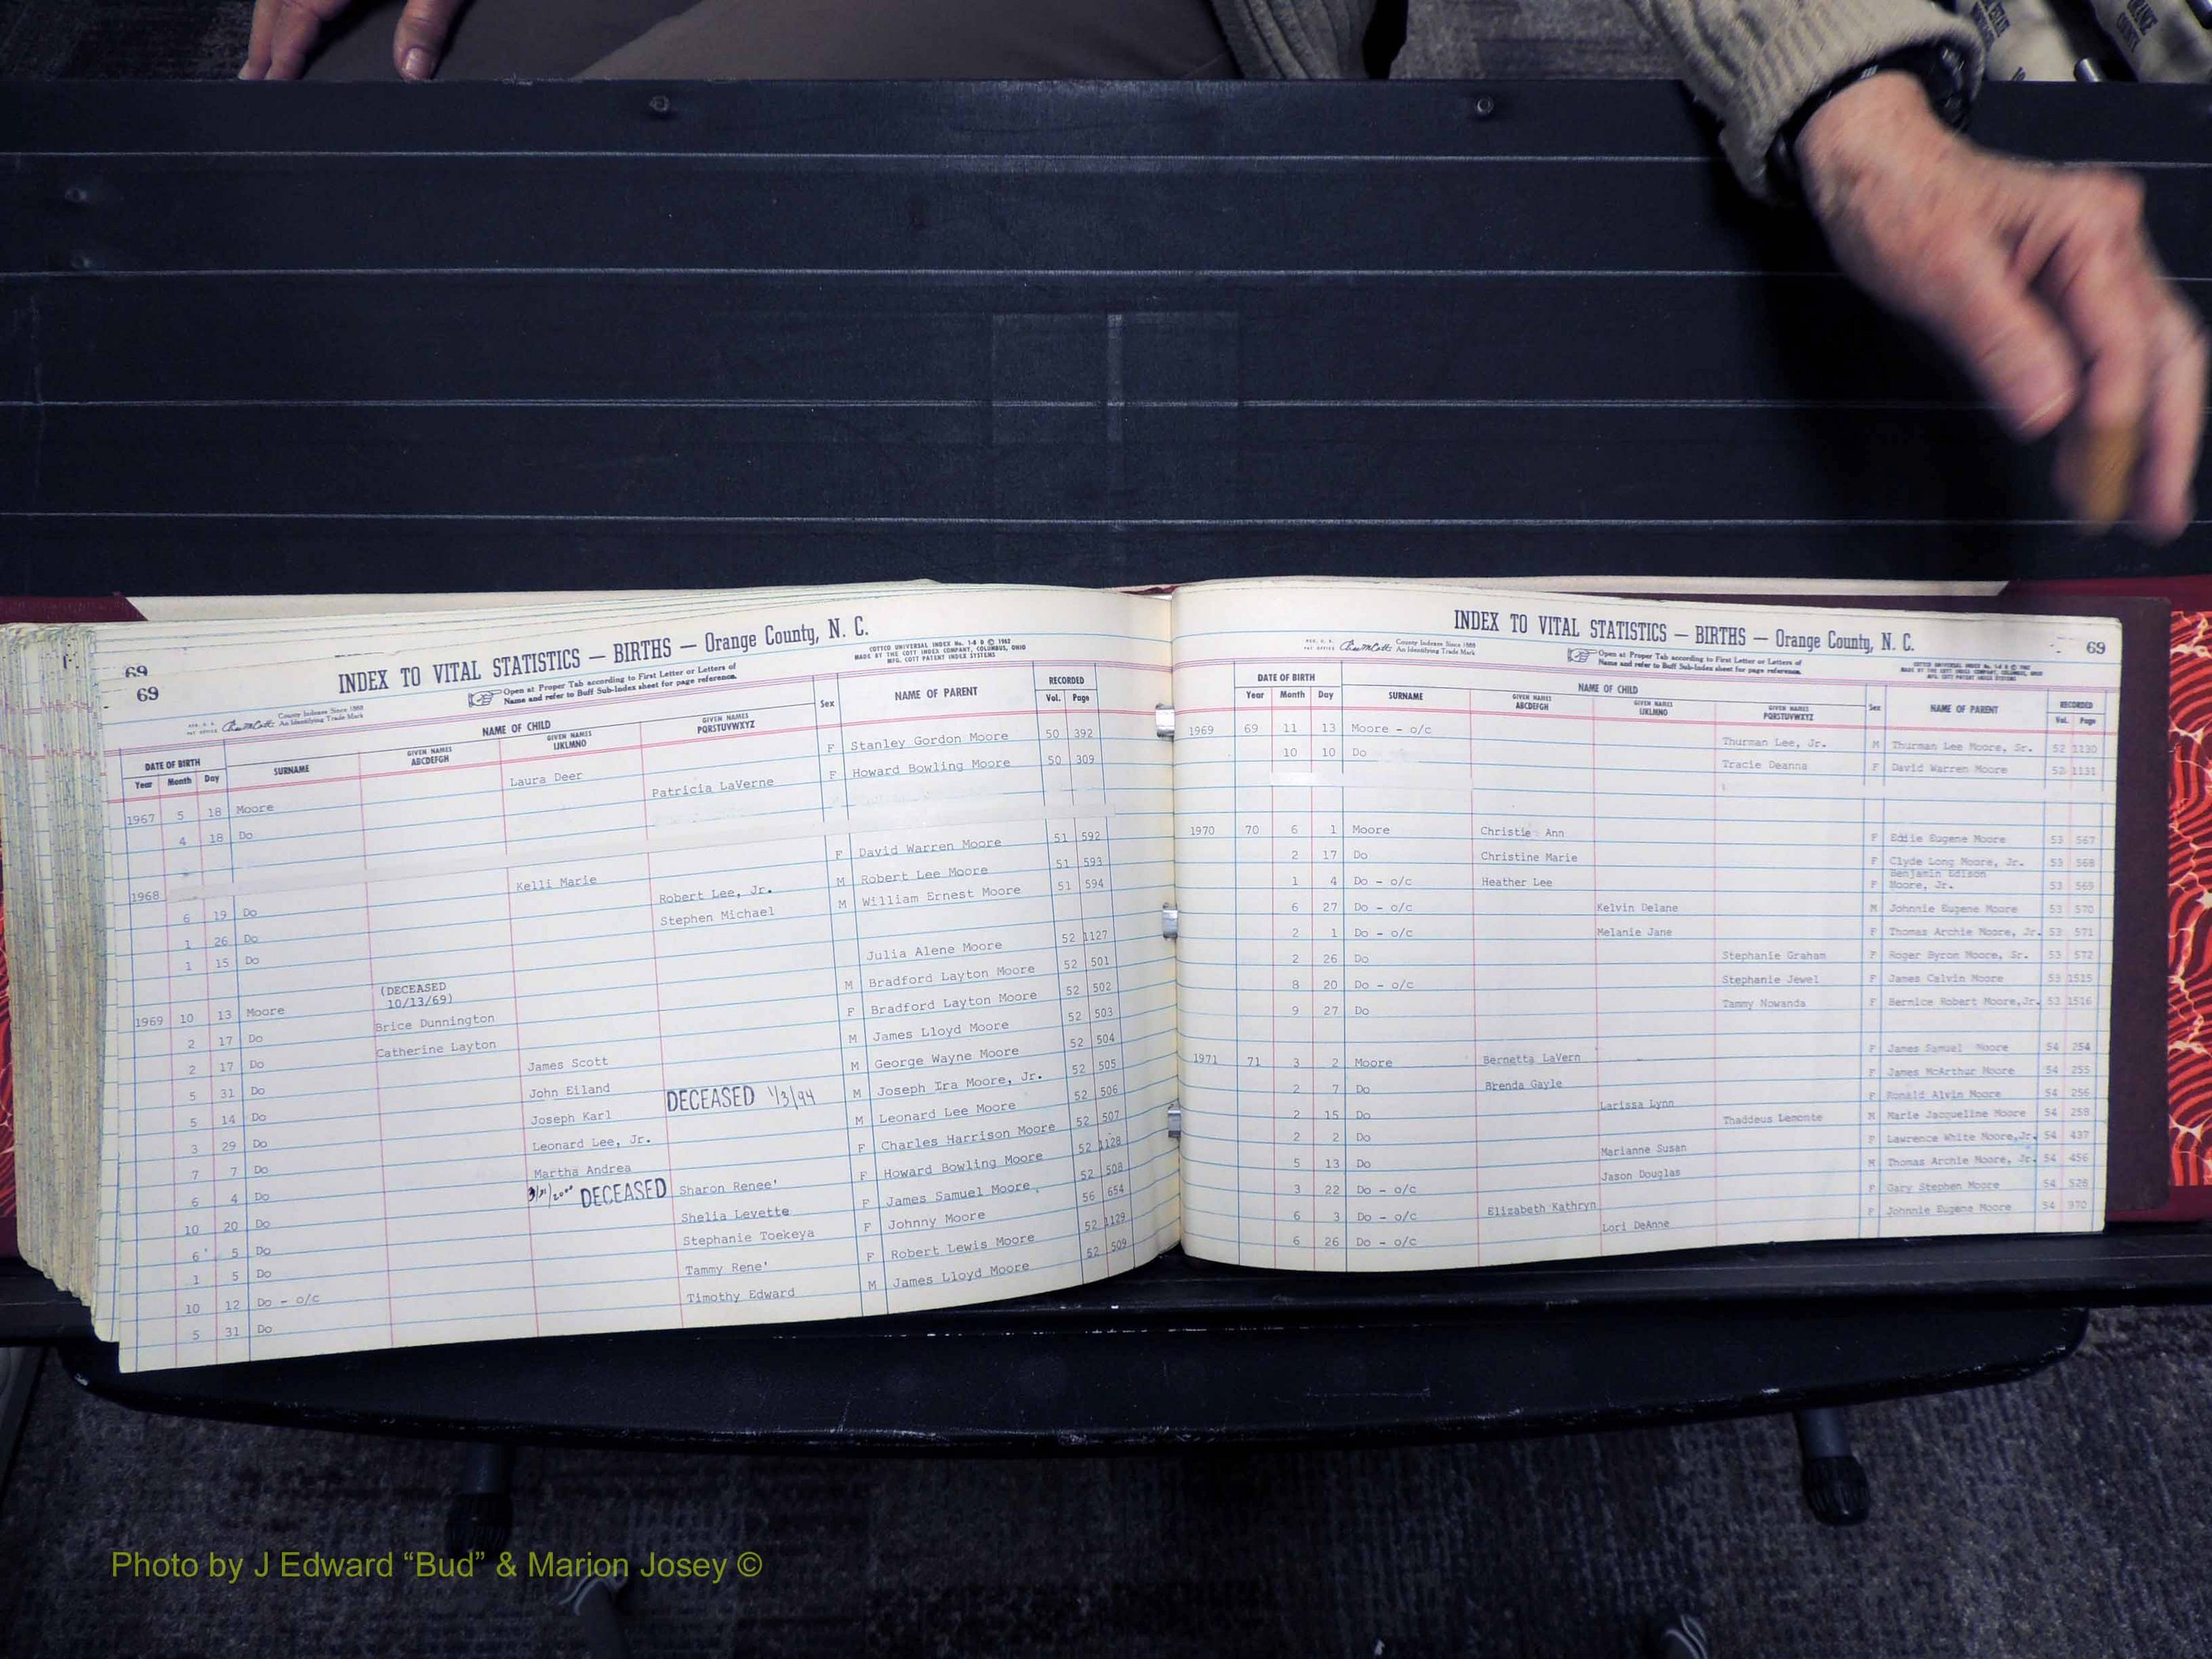 69
69
INDEX TO VITAL STATISTICS — BIRTHS — Orange County, N. C.
County Indexes Since 1888
An Identifying Trade Mark
Open at Proper Tab according to First Letter or Letters of
Name and refer to Buff Sub-Index sheet for page reference.
COTTCO UNIVERSAL INDEX No. 1-8 B © 1962
MADE BY THE COTT INDEX COMPANY, COLUMBUS, OHIO
MFG. COTT PATENT INDEX SYSTEMS
DATE OF BIRTH NAME OF CHILD Sex NAME OF PARENT RECORDED
Year Month Day SURNAME GIVEN NAMES ABCDEFGH GIVEN NAMES IJKLMNO GIVEN NAMES PQRSTUVWXYZ Vol. Page
1967 5 18 Moore Laura Deer F Stanley Gordon Moore 50 392
4 18 Do Patricia LaVerne F Howard Bowling Moore 50 309
1968
6 19 Do Kelli Marie F David Warren Moore 51 592
1 26 Do Robert Lee, Jr. M Robert Lee Moore 51 593
1 15 Do Stephen Michael M William Ernest Moore 51 594
(DECEASED
1969 10 13 Moore 10/13/69) Julia Alene Moore 52 1127
2 17 Do Brice Dunnington M Bradford Layton Moore 52 501
2 17 Do Catherine Layton F Bradford Layton Moore 52 502
5 31 Do James Scott M James Lloyd Moore 52 503
5 14 Do John Eiland M George Wayne Moore 52 504
3 29 Do Joseph Karl DECEASED 1/3/94 M Joseph Ira Moore, Jr. 52 505
7 7 Do Leonard Lee, Jr. M Leonard Lee Moore 52 506
6 4 Do Martha Andrea F Charles Harrison Moore 52 507
10 20 Do 3/31/2000 DECEASED Sharon Renee' F Howard Bowling Moore 52 1128
6 5 Do Shelia Levette F James Samuel Moore 52 508
1 5 Do Stephanie Toekeya F Johnny Moore 56 654
10 12 Do - o/c Tammy Rene' F Robert Lewis Moore 52 1129
5 31 Do Timothy Edward M James Lloyd Moore 52 509
INDEX TO VITAL STATISTICS — BIRTHS — Orange County, N. C.
69
County Indexes Since 1888
An Identifying Trade Mark
Open at Proper Tab according to First Letter or Letters of
Name and refer to Buff Sub-Index sheet for page reference.
DATE OF BIRTH NAME OF CHILD Sex NAME OF PARENT RECORDED
Year Month Day SURNAME GIVEN NAMES ABCDEFGH GIVEN NAMES IJKLMNO GIVEN NAMES PQRSTUVWXYZ Vol. Page
1969 69 11 13 Moore - o/c Thurman Lee, Jr. M Thurman Lee Moore, Sr. 52 1130
10 10 Do Tracie Deanna F David Warren Moore 52 1131
1970 70 6 1 Moore Christie Ann F Eddie Eugene Moore 53 567
2 17 Do Christine Marie F Clyde Long Moore, Jr. 53 568
Benjamin Edison
1 4 Do - o/c Heather Lee F Moore, Jr. 53 569
6 27 Do - o/c Kelvin Delane M Johnnie Eugene Moore 53 570
2 1 Do - o/c Melanie Jane F Thomas Archie Moore, Jr. 53 571
2 26 Do Stephanie Graham F Roger Byron Moore, Sr. 53 572
8 20 Do - o/c Stephanie Jewel F James Calvin Moore 53 1515
9 27 Do Tammy Nowanda F Bernice Robert Moore,Jr. 53 1516
1971 71 3 2 Moore Bernetta LaVern F James Samuel Moore 54 254
2 7 Do Brenda Gayle F James McArthur Moore 54 255
2 15 Do Larissa Lynn F Ronald Alvin Moore 54 256
2 2 Do Thaddeus Lemonte M Marie Jacqueline Moore 54 258
5 13 Do Marianne Susan F Lawrence White Moore,Jr. 54 437
3 22 Do - o/c Jason Douglas M Thomas Archie Moore, Jr. 54 456
6 3 Do - o/c Elizabeth Kathryn F Gary Stephen Moore 54 528
6 26 Do - o/c Lori DeAnne F Johnnie Eugene Moore 54 970
Photo by J Edward “Bud” & Marion Josey ©